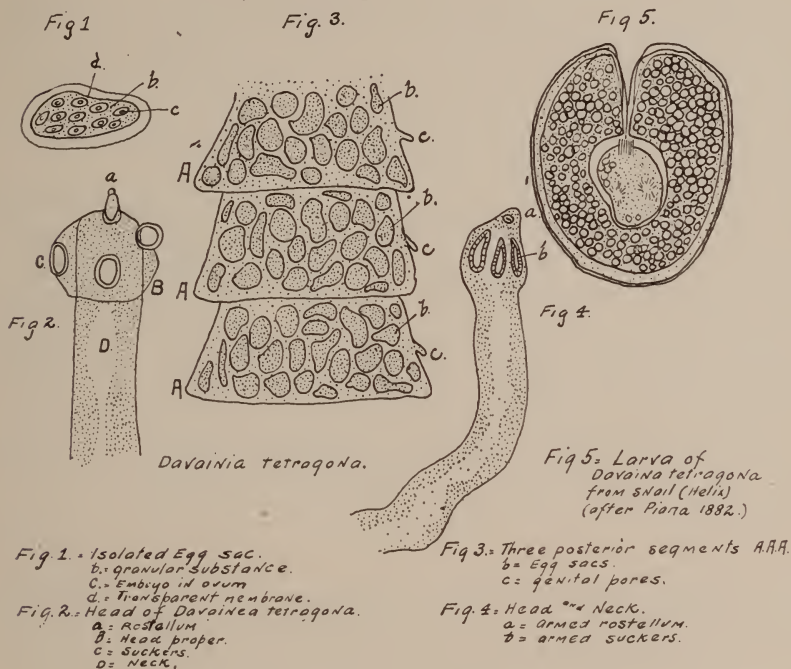 Fig 1
Fig. 3.
Fig 5.
d.
b.
c
a
C.
B
D.
Fig 2.
A
b.
c.
A
b.
c
A
b.
c.
a.
b
Fig 4.
Davainia tetragona.
Fig 5 = Larva of
Davaina tetragona
from snail (Helix)
(after Piana 1882.)
Fig. 1. = Isolated Egg sac.
b. = granular substance.
C. = Embryo in ovum
d. = Transparent membrane.
Fig. 2. = Head of Davainea tetragona.
a = Rostellum
B = Head proper.
C = Suckers.
D = Neck.
Fig 3. = Three posterior segments A.A.A.
b = Egg sacs.
c = genital pores.
Fig. 4 = Head and Neck.
a = armed rostellum.
b = armed suckers.